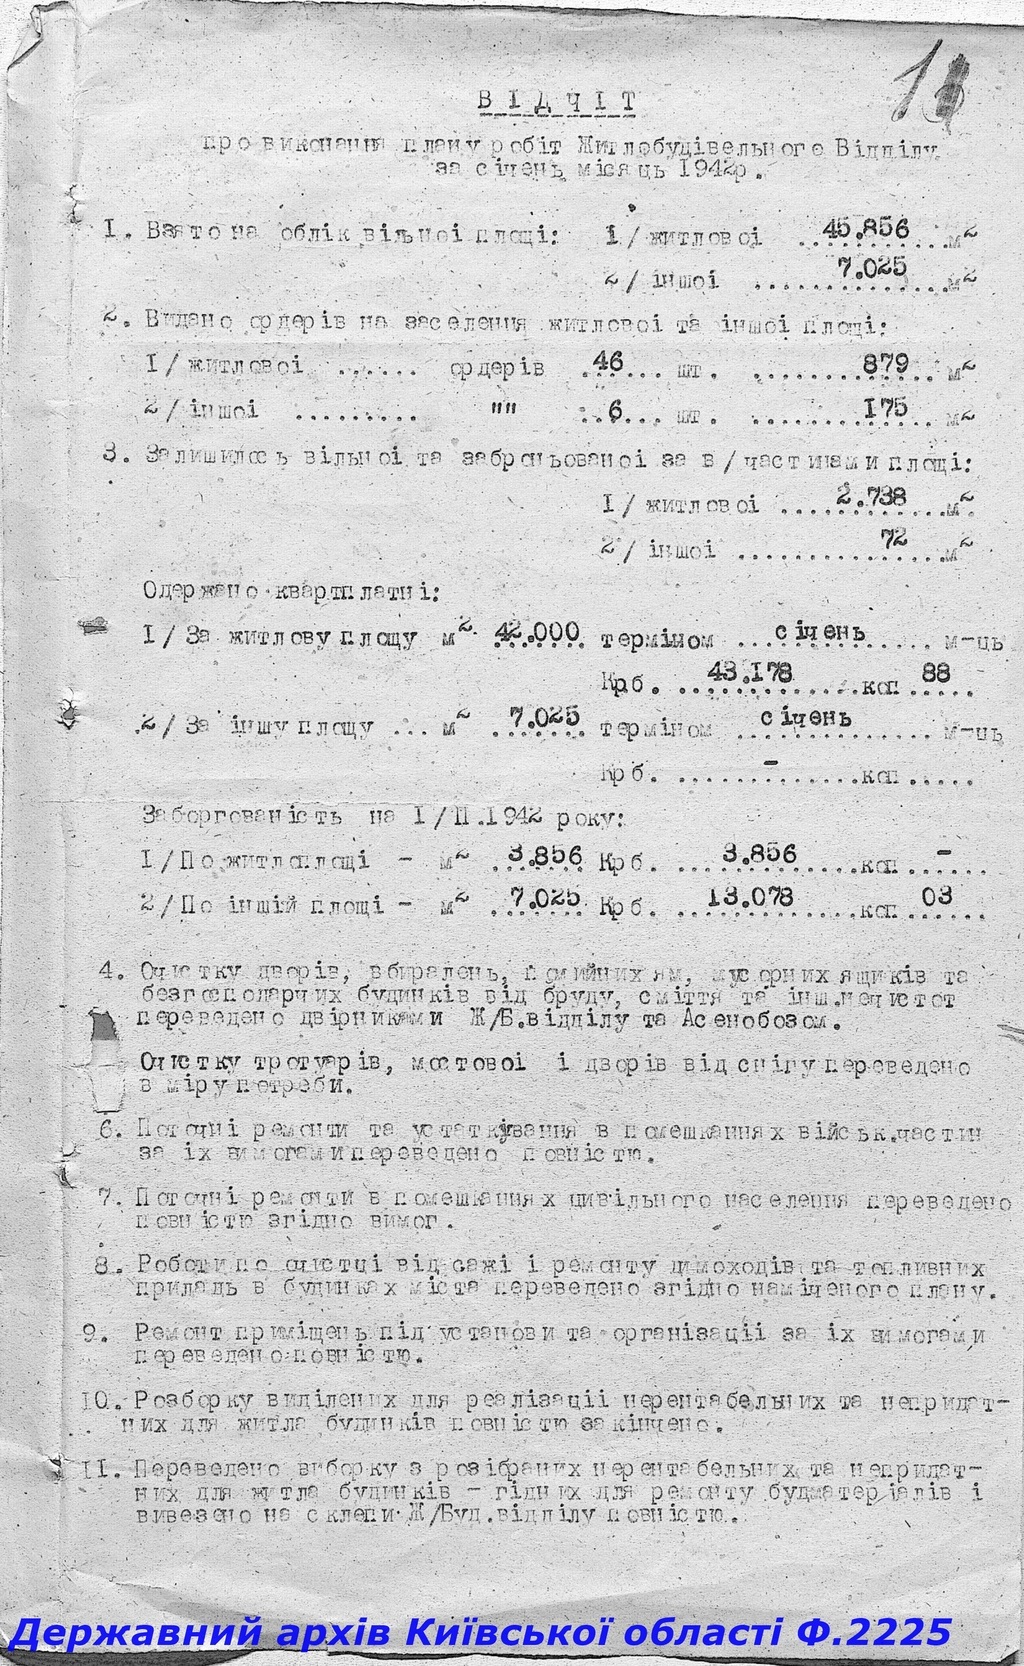 В І Д Ч І Т
про виконання плану робіт Житлобудівельного Відділу
за січень місяць 1942р.
1. Взято на облік вільноі площі: 1/ житловоі 45.856 м2
2/ іншоі 7.025 м2
2. Видано ордерів на заселення житловоі та іншоі площі:
І/ житловоі ...... ордерів 46 шт. 879 м2
2/ іншоі ......... "" 6 шт. 175 м2
3. Залишилось вільноі та заброньованоі за в/частинами площі:
І/ житловоі 2.738 м2
2/ іншоі 72 м2
Одержано квартплатні:
І/ За житлову площу м2 42.000 терміном січень м-ць
Крб. 43.178 коп 88
2/ За іншу площу ... м2 7.025 терміном січень м-ць
Крб. - коп
Заборгованість на І/ІІ.1942 року:
І/По житлоплощі - м2 3.856 Крб. 3.856 коп -
2/По іншій площі - м2 7.025 Крб. 13.078 коп 03
4. Очистку дворів, вбиралень, помийних ям, мусорних ящиків та
безгосподарчих будинків від бруду, сміття та інш.нечистот
переведено двірниками Ж/Б.відділу та Асенобозом.
Очистку тротуарів, мостовоі і дворів від снігу переведено
в міру потреби.
6. Поточні ремонти та устаткування в помешканнях військ.частин
за іх вимогами переведено повністю.
7. Поточні ремонти в помешканнях цивільного населення переведено
повністю згідно вимог.
8. Роботи по очистці від сажі і ремонту димоходів та топливних
приладь в будинках міста переведено згідно наміченого плану.
9. Ремонт приміщень під установи та організаціі за іх вимогами
переведено повністю.
10. Розборку виділених для реалізаціі нерентабельних та непридат-
них для житла будинків повністю закінчено.
11. Переведено виборку з розібраних нерентабельних та непридат-
них для житла будинків - гідних для ремонту будматеріалів і
вивезено на склепи Ж/Буд.відділу повністю.
Державний архів Київської області Ф.2225